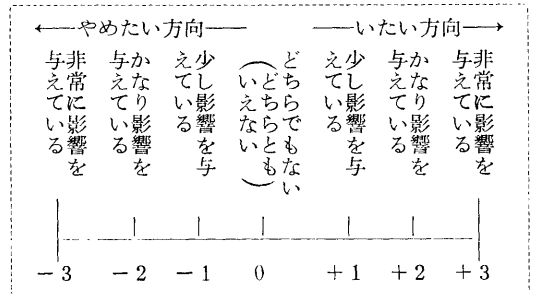 ←―やめたい方向――
――いたい方向―→
非常に影響を
与えている
かなり影響を
与えている
少し影響を与
えている
どちらでもない
（どちらとも
いえない）
少し影響を与
えている
かなり影響を
与えている
非常に影響を
与えている
－3 －2 －1 0 ＋1 ＋2 ＋3